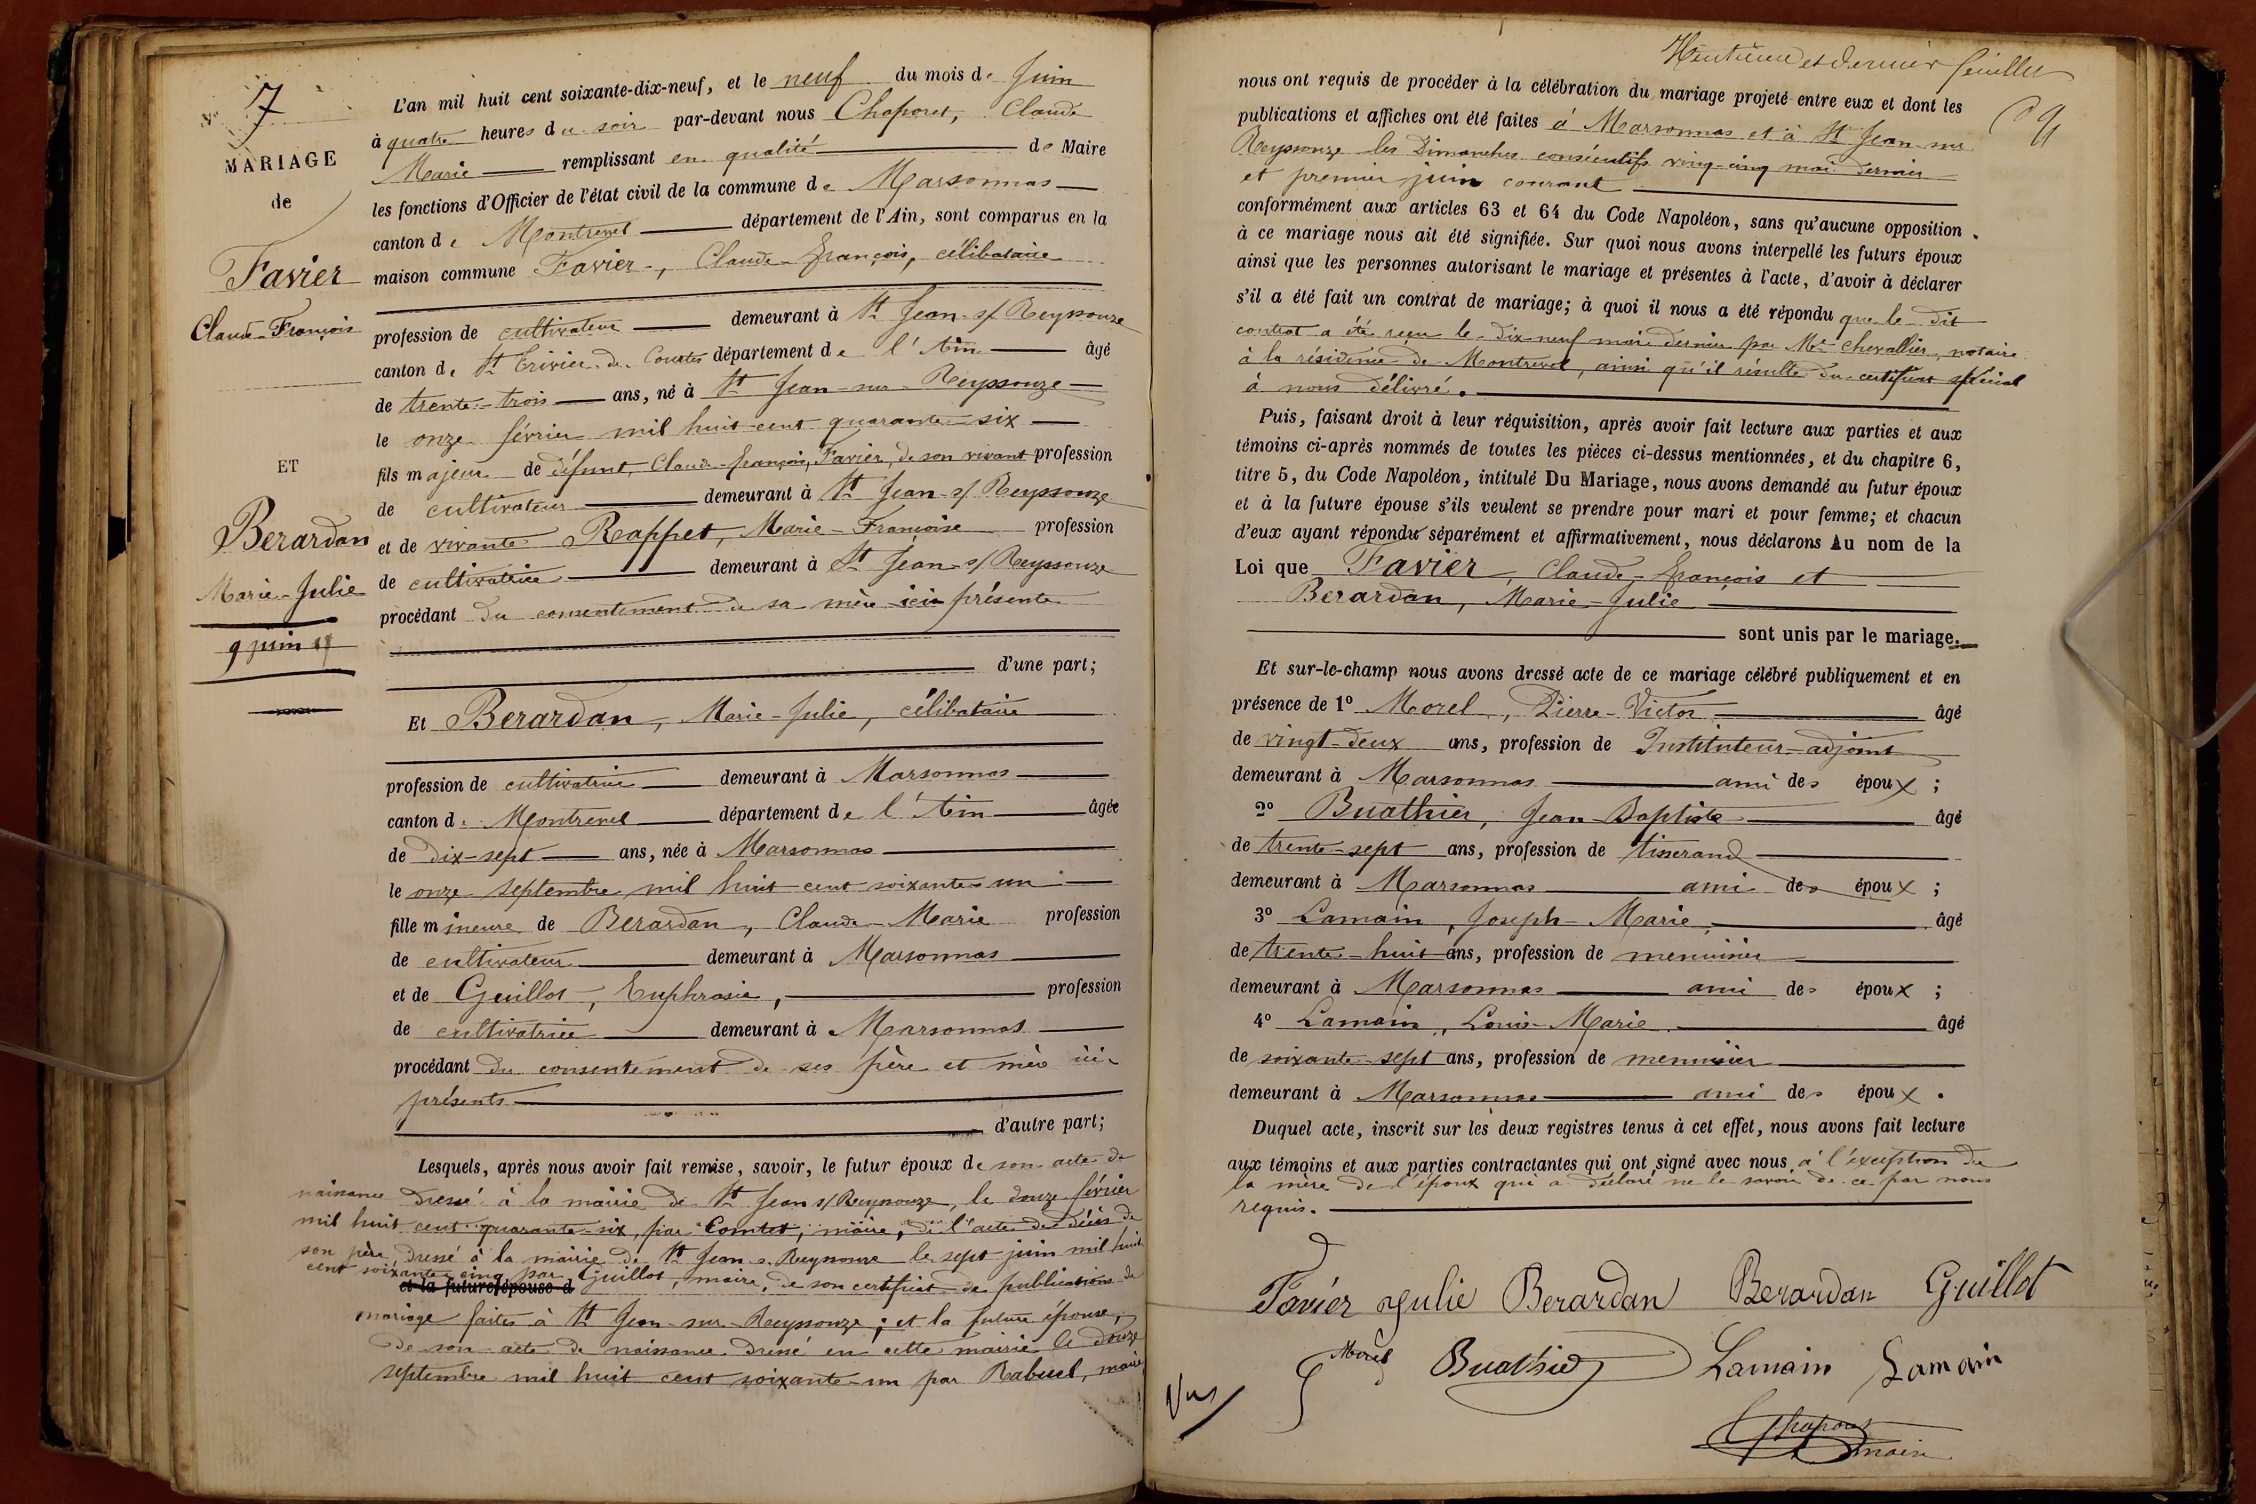 N° 7
MARIAGE
de
Favier
Claude-François
ET
Berardan
Marie-Julie
9 juin
L'an mil huit cent soixante-dix-neuf, et le neuf du mois de Juin
à quatre heures du soir par-devant nous Chaponet, Claude
Marie remplissant en qualité de Maire
les fonctions d'Officier de l'état civil de la commune de Marsonnas
canton de Montrevel département de l'Ain, sont comparus en la
maison commune Favier, Claude-François, célibataire
profession de cultivateur demeurant à St Jean s/ Reyssouze
canton de St Trivier de Courtes département de l'Ain âgé
de trente-trois ans, né à St Jean-sur-Reyssouze
le onze février mil huit cent quarante-six
fils majeur de défunt Claude-François Favier, de son vivant profession
de cultivateur demeurant à St Jean s/ Reyssouze
et de vivante Rappet, Marie-Françoise profession
de cultivatrice demeurant à St Jean s/ Reyssouze
procédant du consentement de sa mère ici présente
d'une part;
Et Berardan, Marie-Julie, célibataire
profession de cultivatrice demeurant à Marsonnas
canton de Montrevel département de l'Ain âgée
de dix-sept ans, née à Marsonnas
le onze septembre mil huit cent soixante-un
fille mineure de Berardan, Claude-Marie profession
de cultivateur demeurant à Marsonnas
et de Guillot, Euphrasie, profession
de cultivatrice demeurant à Marsonnas
procédant du consentement de ses père et mère ici
présents
d'autre part;
Lesquels, après nous avoir fait remise, savoir, le futur époux de son acte de
naissance dressé à la mairie de St Jean s/ Reyssouze, le douze février
mil huit cent quarante-six, par Comtet, maire, de l'acte de décès de
son père dressé à la mairie de St Jean s. Reyssouze le sept juin mil huit
cent soixante-cinq par Guillot, maire, de son certificat de publications de
et la future épouse d
mariage faites à St Jean-sur-Reyssouze; et la future épouse,
de son acte de naissance dressé en cette mairie le douze
septembre mil huit cent soixante-un par Rabuel, maire
et dernier feuillet
nous ont requis de procéder à la célébration du mariage projeté entre eux et dont les
publications et affiches ont été faites à Marsonnas et à St Jean-sur
Reyssouze les Dimanches consécutifs vingt-cinq mai dernier
et premier juin courant
conformément aux articles 63 et 64 du Code Napoléon, sans qu'aucune opposition
à ce mariage nous ait été signifiée. Sur quoi nous avons interpellé les futurs époux
ainsi que les personnes autorisant le mariage et présentes à l'acte, d'avoir à déclarer
s'il a été fait un contrat de mariage; à quoi il nous a été répondu que le dit
contrat a été reçu le dix-neuf mai dernier par Me Chevallier, notaire
à la résidence de Montrevel, ainsi qu'il résulte du certificat spécial
à nous délivré.
Puis, faisant droit à leur réquisition, après avoir fait lecture aux parties et aux
témoins ci-après nommés de toutes les pièces ci-dessus mentionnées, et du chapitre 6,
titre 5, du Code Napoléon, intitulé Du Mariage, nous avons demandé au futur époux
et à la future épouse s'ils veulent se prendre pour mari et pour femme; et chacun
d'eux ayant répondu séparément et affirmativement, nous déclarons Au nom de la
Loi que Favier, Claude-François et
Berardan, Marie-Julie
sont unis par le mariage.
Et sur-le-champ nous avons dressé acte de ce mariage célébré publiquement et en
présence de 1° Morel, Pierre-Victor âgé
de vingt-deux ans, profession de Instituteur-adjoint
demeurant à Marsonnas ami des époux;
2° Buathier, Jean-Baptiste âgé
de trente-sept ans, profession de tisserand
demeurant à Marsonnas ami des époux;
3° Lamain, Joseph-Marie âgé
de trente-huit ans, profession de menuisier
demeurant à Marsonnas ami des époux;
4° Lamain, Louis-Marie âgé
de soixante-sept ans, profession de menuisier
demeurant à Marsonnas ami des époux.
Duquel acte, inscrit sur les deux registres tenus à cet effet, nous avons fait lecture
aux témoins et aux parties contractantes qui ont signé avec nous à l'exception de
la mère de l'époux qui a déclaré ne le savoir de ce par nous
requis.
Favier Julie Berardan Berardan Guillot
Morel Buathier Lamain Lamain
Vu
Chaponet
maire